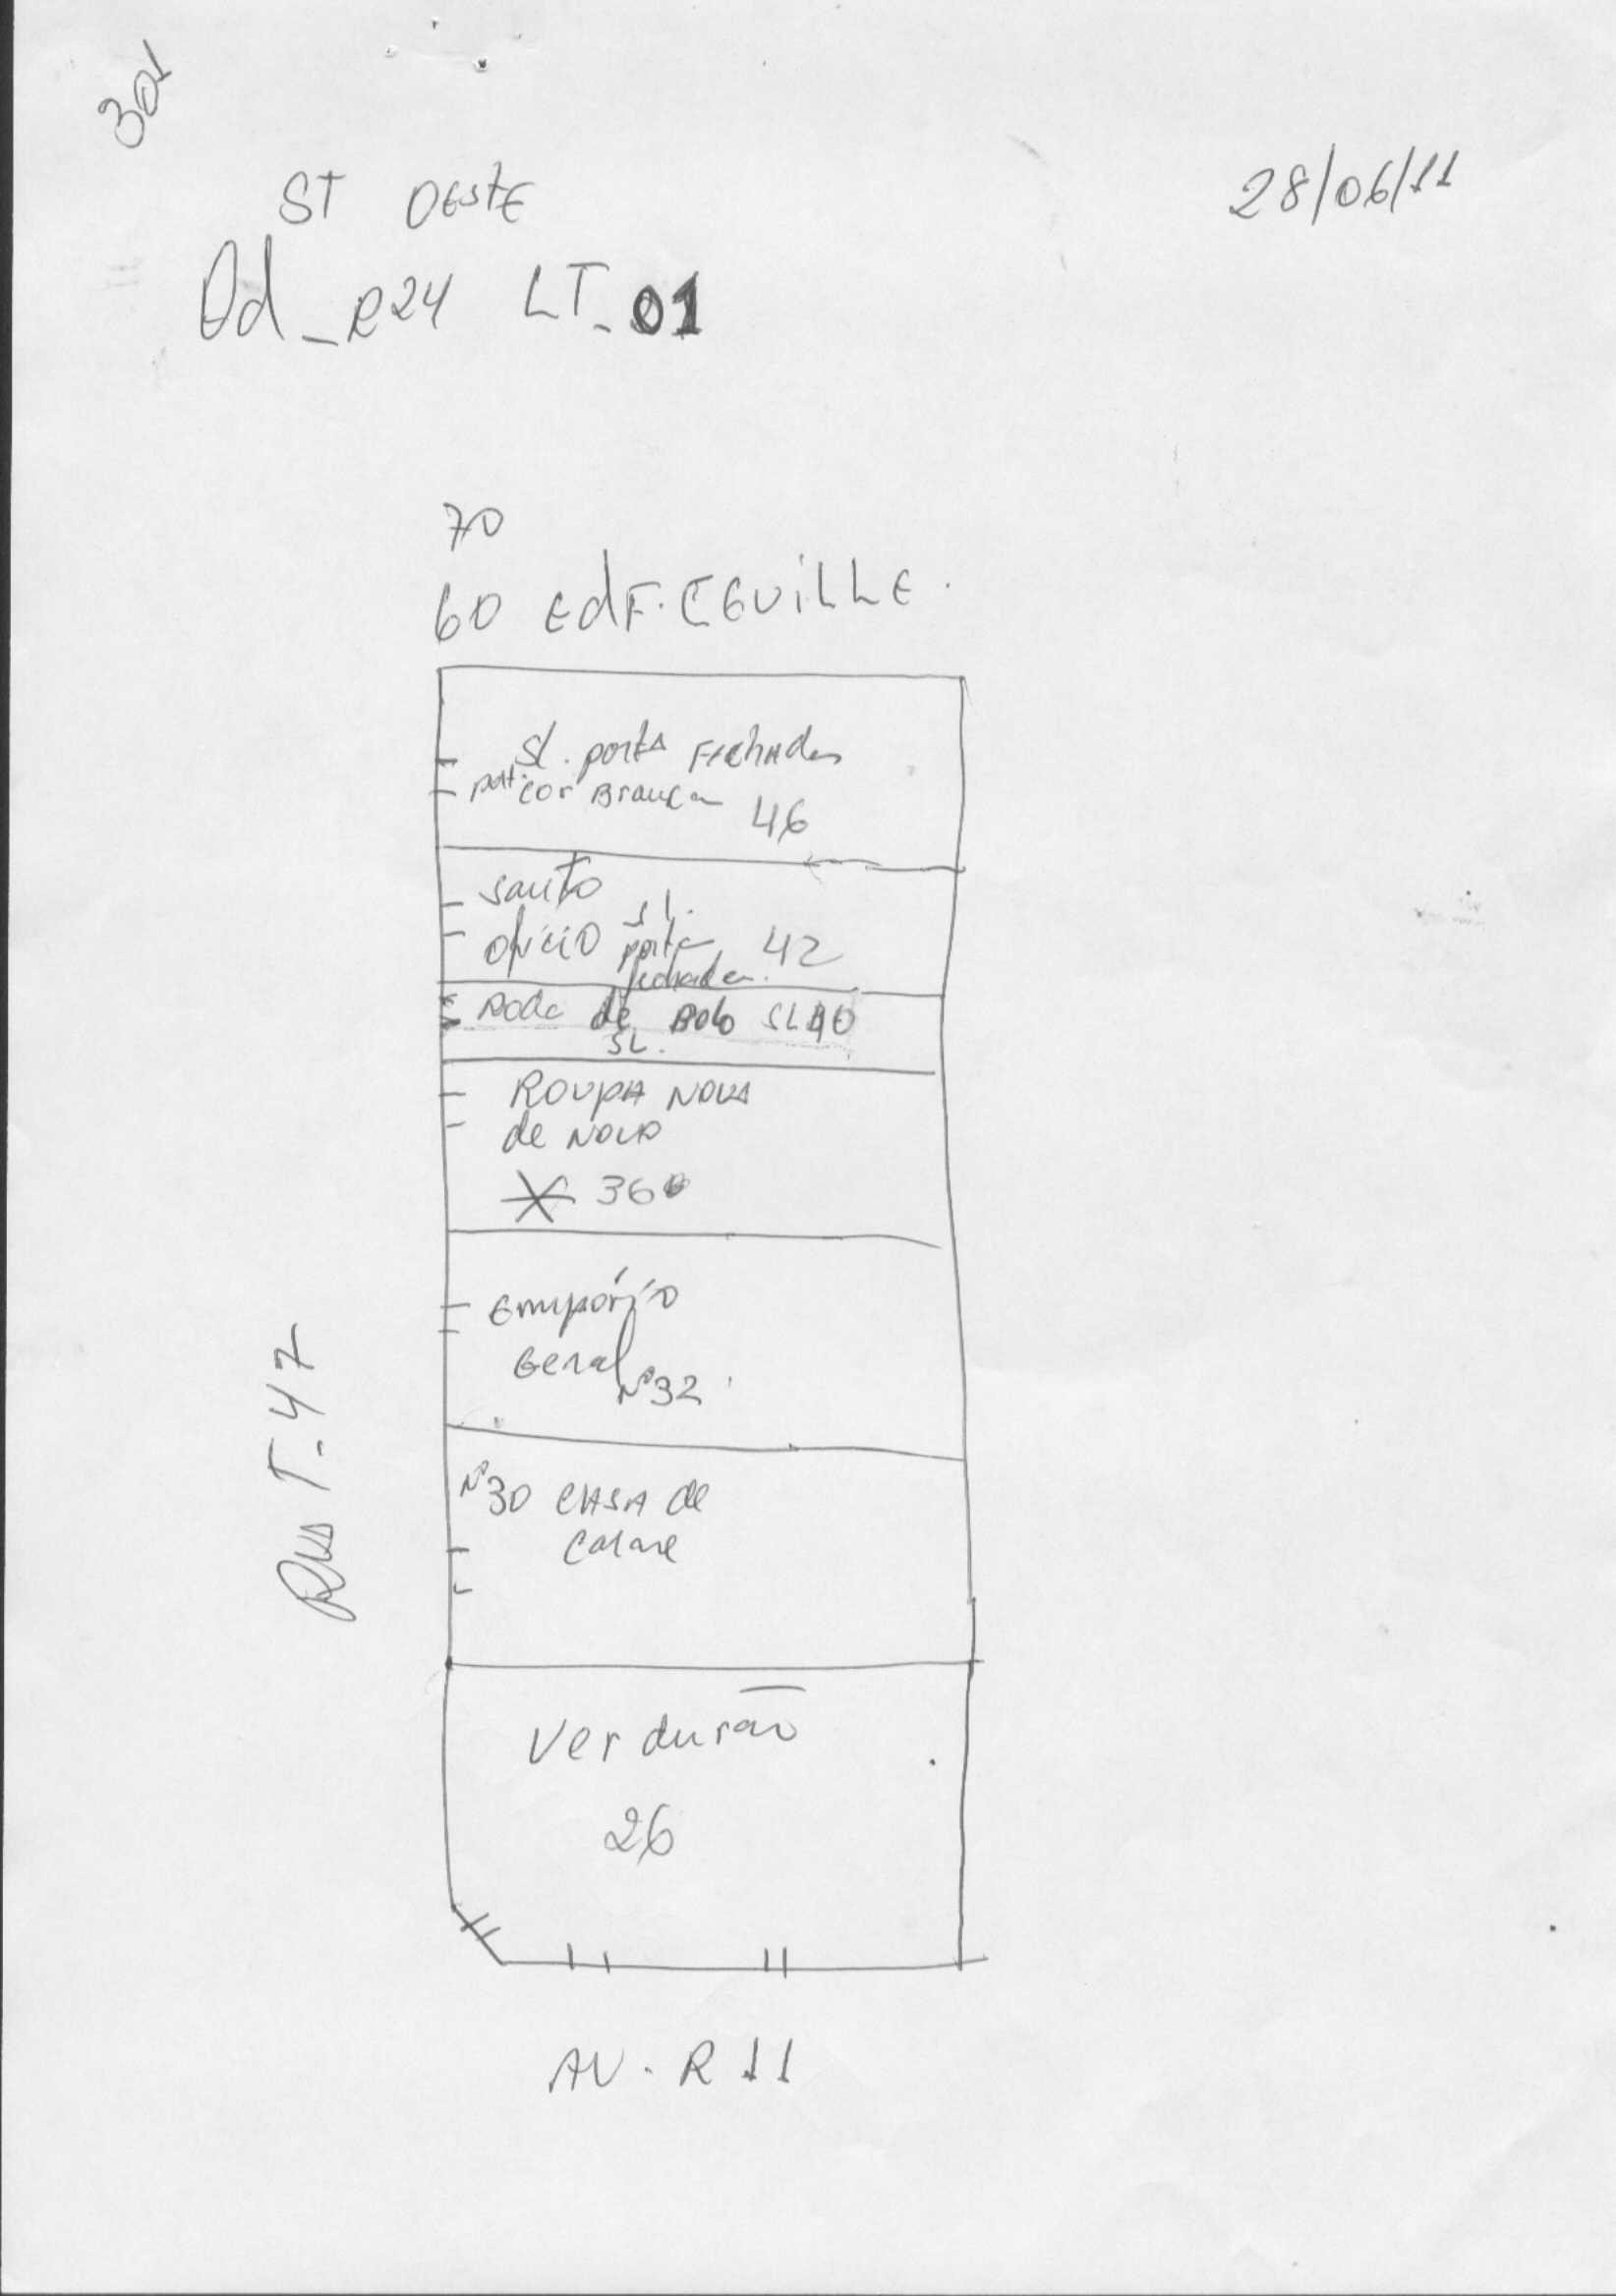 301
ST OESTE
28/06/11
Qd_R24 LT_01
70
60 EdF. CEUILLE.
Sl. porta Fechada
port. cor Branca 46
santo
ofício sl. porta fechada. 42
de Bolo SL 40
SL.
ROUPA NOVA
de NOVO
36
Empório
Geral Nº32
Nº30 CASA de
carne
Verdurão
26
Rua T-47
AV. R 11